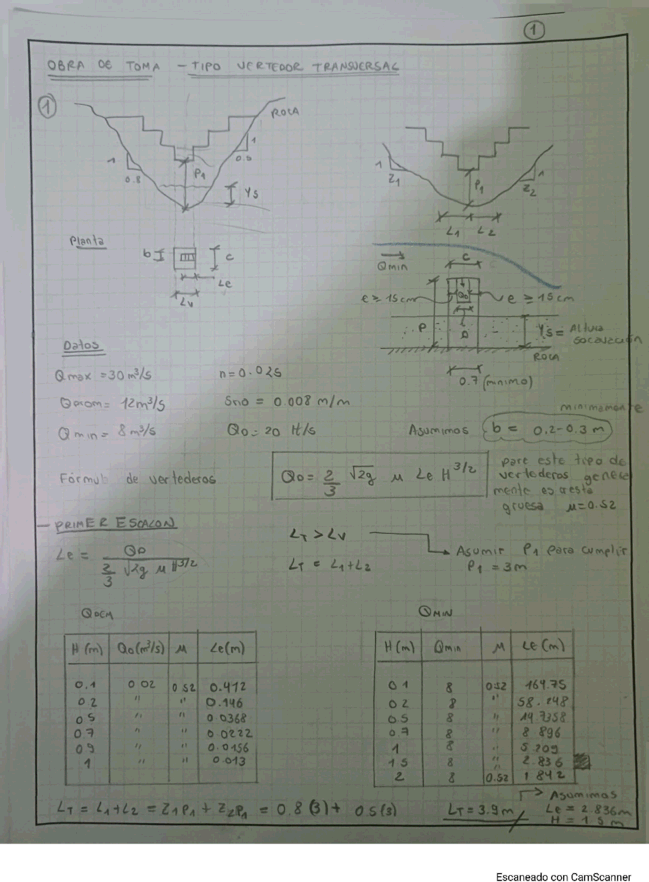 1
OBRA DE TOMA - TIPO VERTEDOR TRANSVERSAL
1
ROCA
1
0.8
P1
1
0.5
Ys
1
Z1
P1
1
Z2
L1 L2
Planta
b
c
Le
Lv
Qmin
c
e ≥ 15cm
e ≥ 15cm
P
Ys = Altura socavación
ROCA
0.7 (mínimo)
Datos
Qmax = 30 m³/s n = 0.025
12 m³/s Sno = 0.008 m/m
Qmin = 8 m³/s Qo = 20 lt/s
minimamente
Asumimos b = 0.2-0.3 m
Fórmula de vertederos
Qo = 2/3 √2g μ Le H^3/2
para este tipo de
vertederos
mente es cresta
gruesa μ=0.52
- PRIMER ESCALON
Le = Qo / (2/3 √2g μ H^3/2)
LT > Lv
LT = L1+L2
Asumir P1 para cumplir
P1 = 3m
QMIN
H (m) Qo(m³/s) μ Le(m)
0.1 0.02 0.52 0.412
0.2 " " 0.146
0.5 " " 0.0368
0.7 " " 0.0222
0.9 " " 0.0156
1 " " 0.013
H (m) Qmin μ Le (m)
0.1 8 0.52 164.75
0.2 8 " 58.248
0.5 8 " 14.7358
0.7 8 " 8.896
1 8 " 5.209
1.5 8 " 2.836
2 8 0.52 1.842
Asumimos
Le = 2.836m
H = 1.5 m
LT = L1+L2 = Z1P1 + Z2P1 = 0.8 (3) + 0.5(3) LT = 3.9 m
Escaneado con CamScanner